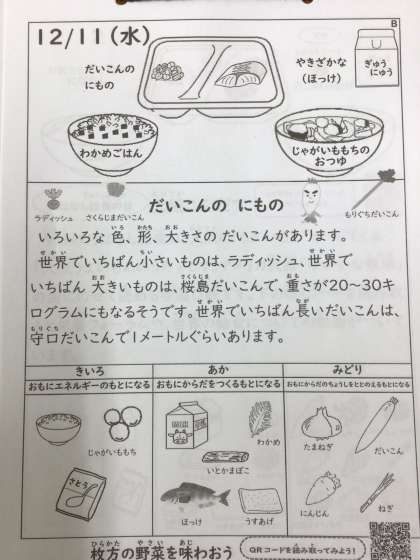 B
12/11(水)
だいこんの
にもの
やきざかな
(ほっけ)
ぎゅう
にゅう
わかめごはん
じゃがいももちの
おつゆ
ラディッシュ
さくらじまだいこん
だいこんの にもの
もりぐちだいこん
いろいろな 色、形、大きさの だいこんがあります。
世界でいちばん小さいものは、ラディッシュ、世界で
いちばん 大きいものは、桜島だいこんで、重さが20~30キ
ログラムにもなるそうです。世界でいちばん長いだいこんは、
守口だいこんで1メートルぐらいあります。
きいろ
おもにエネルギーのもとになる
じゃがいももち
さとう
あか
おもにからだをつくるもとになる
わかめ
いとかまぼこ
ほっけ
うすあげ
みどり
おもにからだのちょうしをととのえるもとになる
たまねぎ
だいこん
にんじん
ねぎ
枚方の野菜を味わおう
QRコードを読み取ってみよう!